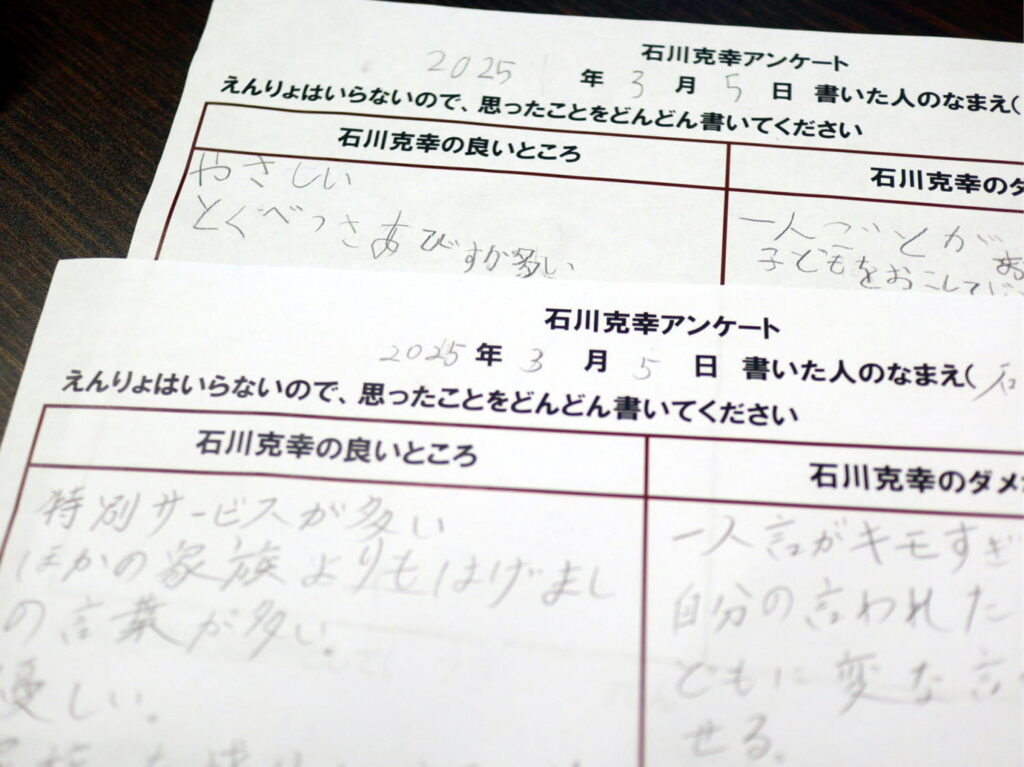 石川克幸アンケート
2025 年 3 月 5 日 書いた人のなまえ(
えんりょはいらないので、思ったことをどんどん書いてください
石川克幸の良いところ
石川克幸のダ
やさしい
とくべつさあびすが多い
一人ごとが
子どもをおこして
石川克幸アンケート
2025 年 3 月 5 日 書いた人のなまえ( 石
えんりょはいらないので、思ったことをどんどん書いてください
石川克幸の良いところ
石川克幸のダメ
特別サービスが多い
ほかの家族よりもはげまし
の言葉が多い。
優しい。
一人言がキモすぎ
自分の言われた
どもに変な言
せる。